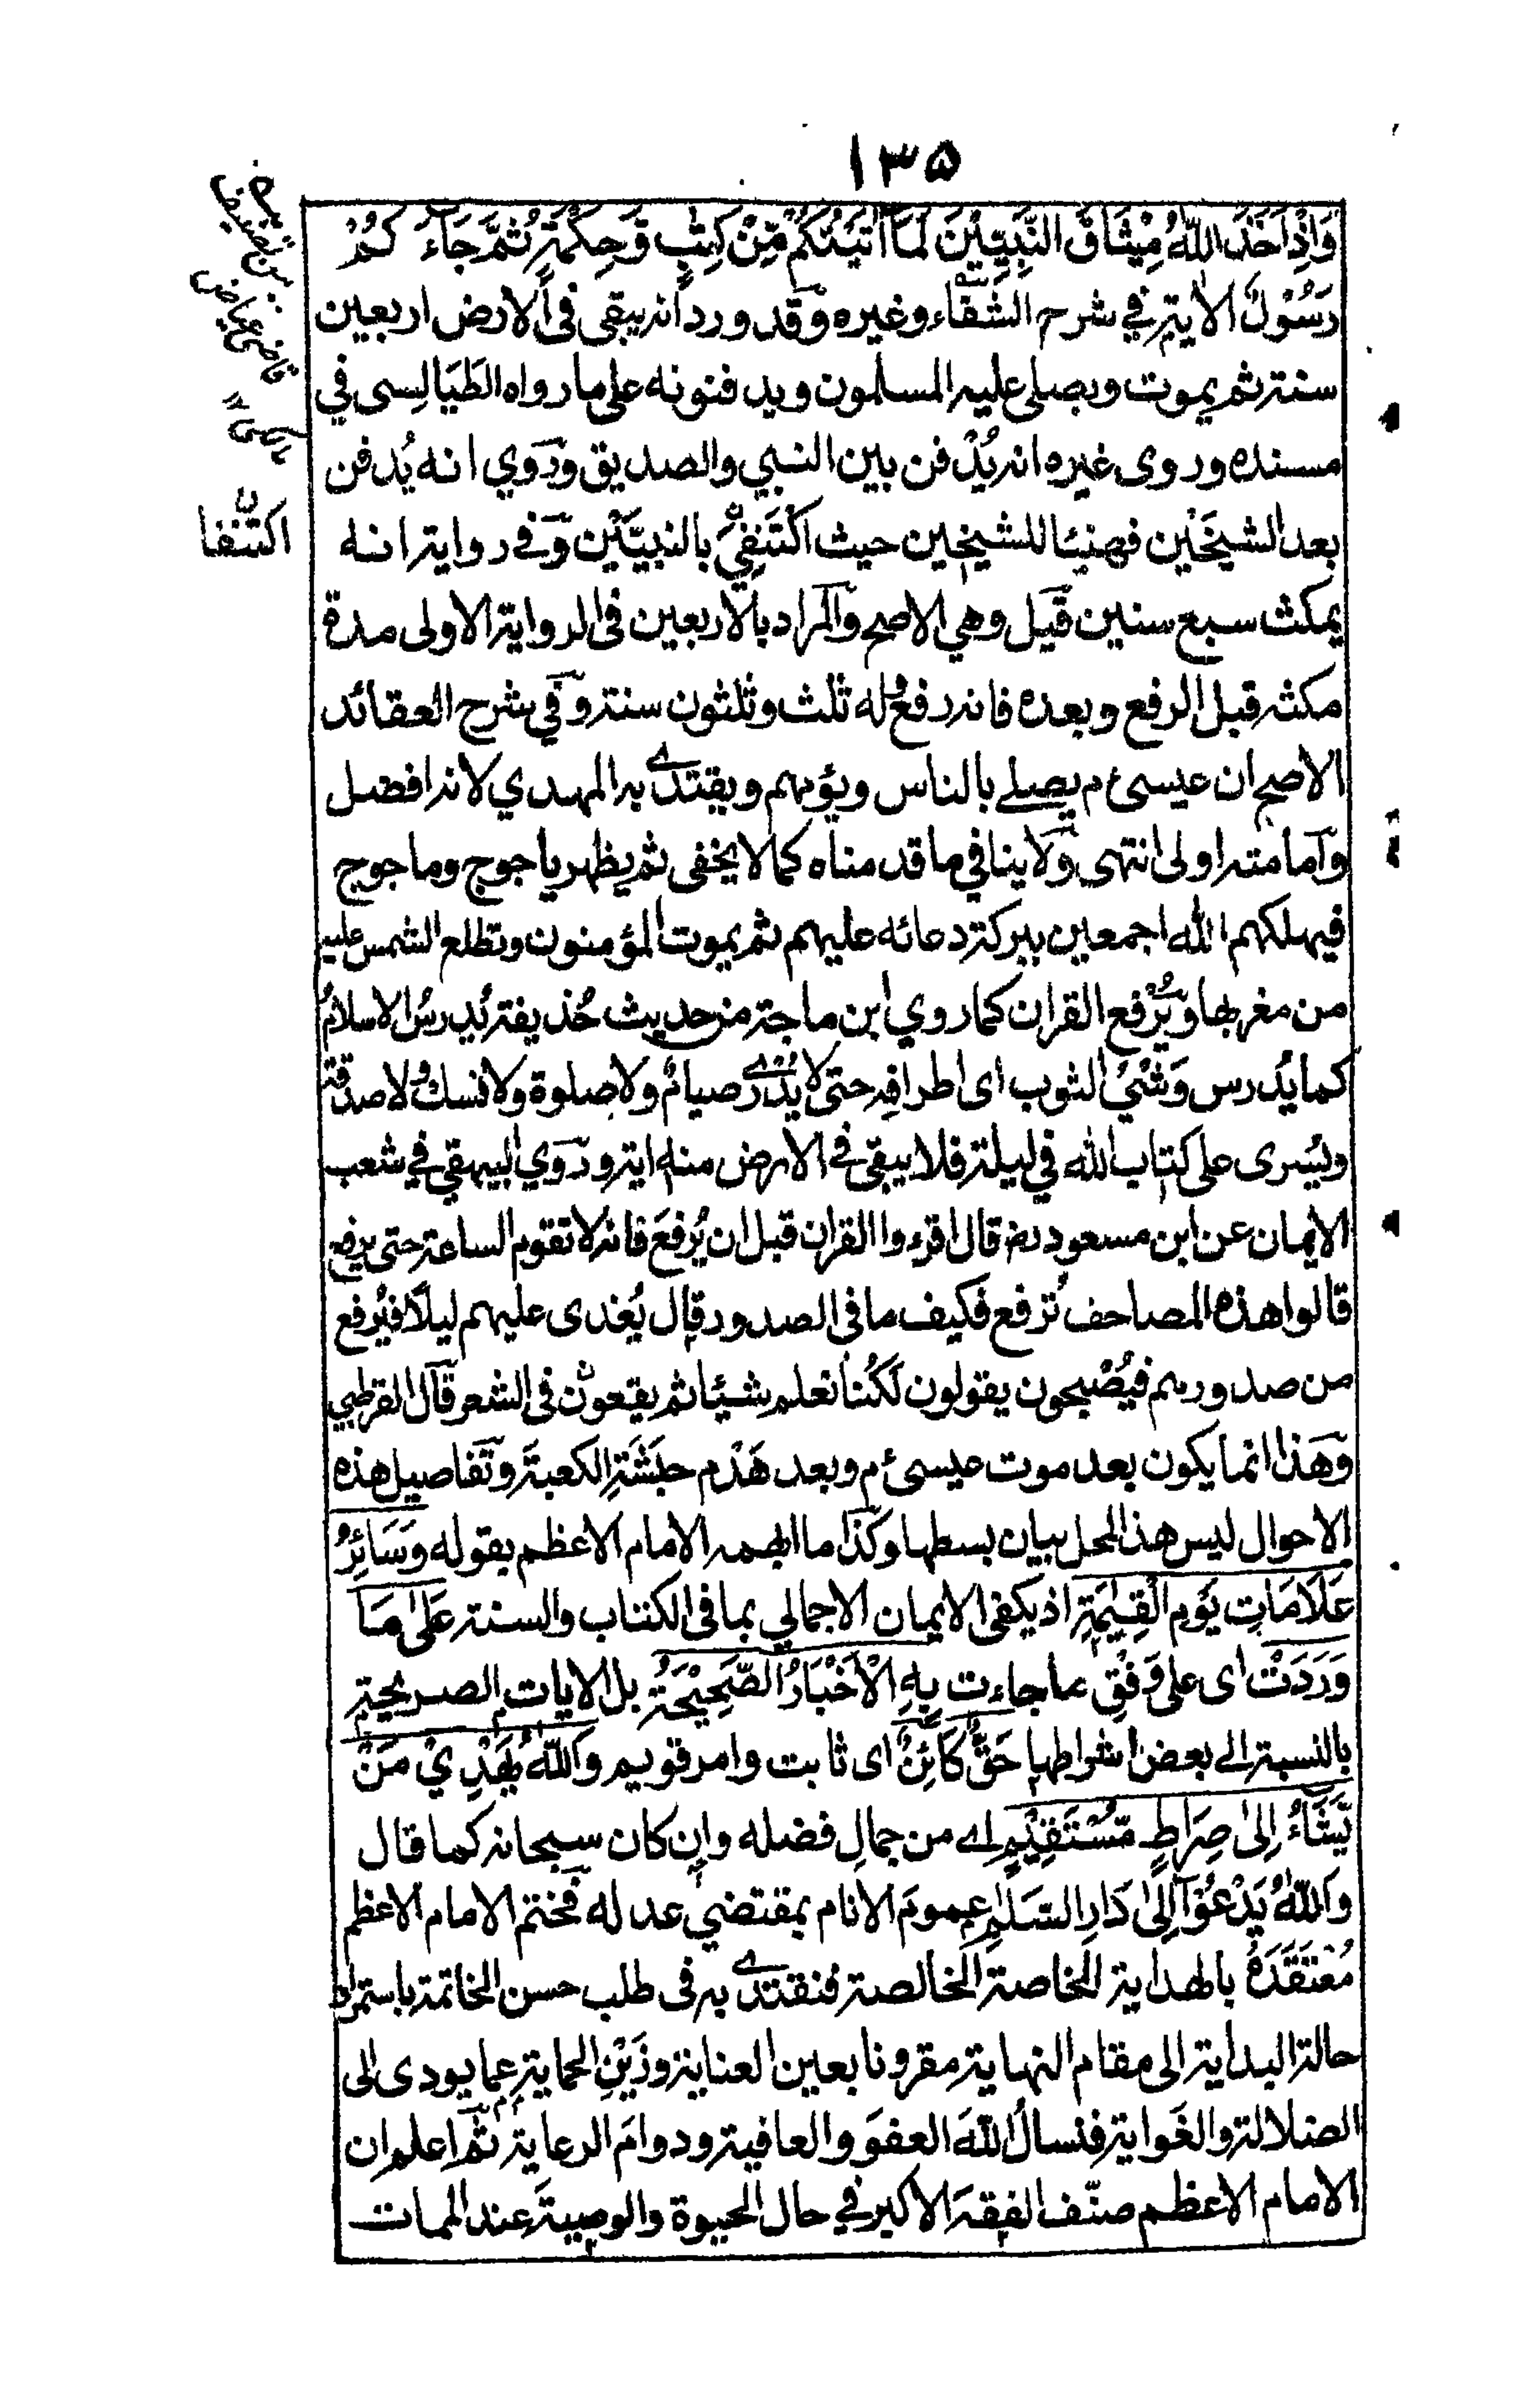 ١٣٥
وَاِذْ اَخَذَ اللّٰهُ مِيْثَاقَ النَّبِيّٖنَ لَمَآ اٰتَيْتُكُمْ مِّنْ كِتٰبٍ وَّحِكْمَةٍ ثُمَّ جَآءَكُمْ
رَسُوْلٌ الاية في شرح الشفاء وغيره وقد ورد انه يبقى فى الارض اربعين
سنة ثم يموت ويصلى عليه المسلمون ويدفنونه على ما رواه الطَيَالِسى في
مسنده وروى غيره انه يُدْفن بين النبي والصديق ورَوي انه يُدفن
بعد الشيخَين فهنيئا للشيخين حيث اكْتَنَفِيَ بالنبيَّيْن وفي رواية انه
يمكث سبع سنين قيل وهي الاصح والمراد بالاربعين فى الرواية الاولى مدة
مكثه قبل الرفع وبعده فانه رفع وله ثلث وثلثون سنة وفي شرح العقائد
الاصح ان عيسىٰ ع م يصلے بالناس ويؤمهم ويقتدے به المهدي لانه افضل
وامامته اولى انتهى ولا ينافي ما قدمناه كما لا يخفى ثم يظهر ياجوج وماجوج
فيهلكهم الله اجمعين ببركة دعائه عليهم ثم يموت المؤمنون وتطلع الشمس عليه
من مغربها ويُرْفع القران كما روي ابن ماجة من حديث حُذيفة يُدرسُ الاسلامُ
كما يُدرس وَشْيُ الثوب اى اطرافه حتى لا يُدْرے صيامٌ ولا صلوة ولا نسك ولا صدقة
ويُسرى على كتاب الله في ليلة فلا يبقى في الارض منه اية ورَوي البيهقي في شعب
الايمان عن ابن مسعود رض قال اقرءوا القران قبل ان يُرفعَ فانه لا تقوم الساعة حتى يرفع
قالوا هذه المصاحف تُرفع فكيف ما فى الصدور قال يُغدى عليهم ليلًا فيُرفع
من صدورهم فيُصْبِحون يقولون لَكُنا نعلم شيئا ثم يقعون فى الشعر قال القرطبي
وهذا انما يكون بعد موت عيسىٰ ع م وبعد هَدْم حبَشَةِ الكعبةَ وتفاصيل هذه
الاحوال ليس هذا المحل ببيان بسطها وكذا ما ابهمه الامام الاعظم بقوله وَسَائِرُ
عَلَامَاتِ يَوْمِ الْقِيٰمَةِ اذ يكفى الايمان الاجمالي بما فى الكتاب والسنة عَلٰى مَا
وَرَدَتْ اى على وَفْقِ ما جاءت بِهِ الْاَخْبَارُ الصَّحِيْحَةُ بل الايات الصريحة
بالنسبة الے بعض اشراطها حَقٌّ كَائِنٌ اى ثابت وامر قويم وَاللّٰهُ يَهْدِيْ مَنْ
يَّشَآءُ اِلٰى صِرَاطٍ مُّسْتَقِيْمٍ اے من جمالِ فضله وان كان سبحانه كما قال
وَاللّٰهُ يَدْعُوْٓا اِلٰى دَارِ السَّلٰمِ عمومَ الانام بمقتضي عدله فختم الامام الاعظم
مُعْتَقَدَهُ بالهداية الخاصة الخالصة فنقتدے به فى طلب حسن الخاتمة باستمرار
حالة البداية الى مقام النهاية مقرونا بعين العناية وزَيْنِ الحماية عما يودى الى
الضلالة والغَواية فنسالُ اللهَ العفوَ والعافية ودوامَ الرعاية ثم اعلم ان
الامام الاعظم صنّف الفقهَ الاكبر في حال الحيوة والوصيةَ عند الممات
قاضى عياض
اكتنفا